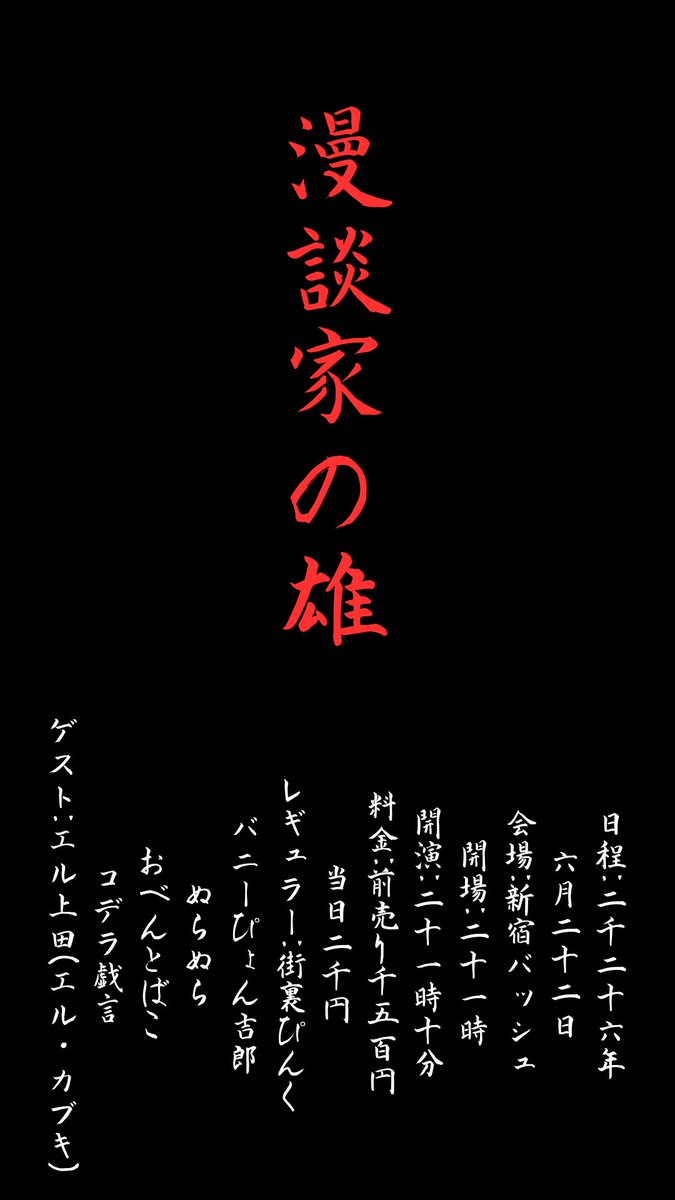 漫談家の雄
日程:二千二十六年
六月二十二日
会場:新宿バッシュ
開場:二十一時
開演:二十一時十分
料金:前売り千五百円
当日二千円
レギュラー:街裏ぴんく
バニーぴょん吉郎
ぬらぬら
おべんとばこ
コデラ戯言
ゲスト:エル上田(エル・カブキ)